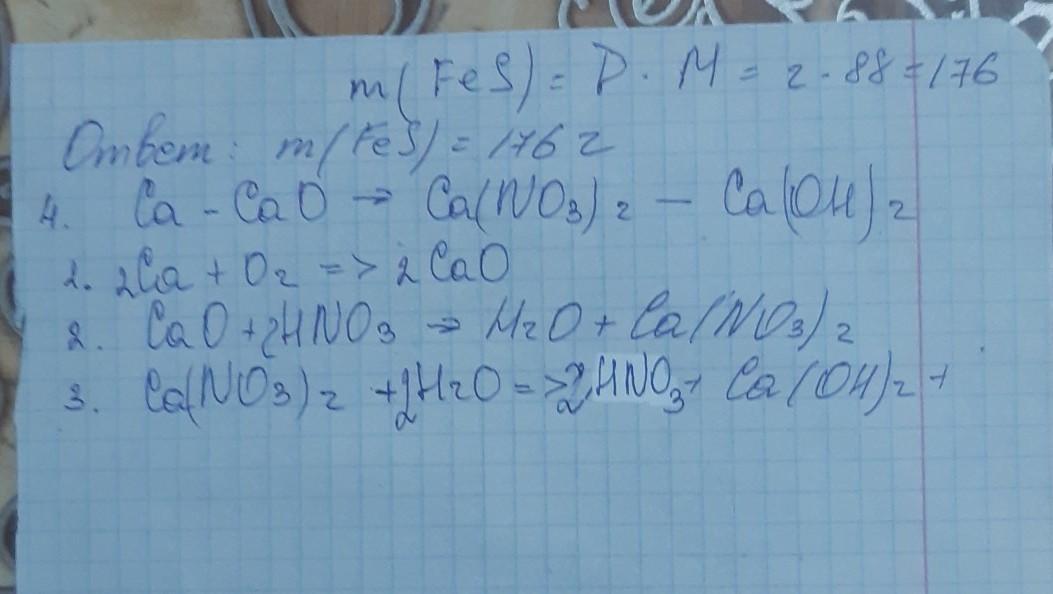 m(FeS) = D · M = 2 · 88 = 176
Ответ: m(FeS) = 176 г
4. Ca - CaO → Ca(NO3)2 — Ca(OH)2
1. 2Ca + O2 => 2CaO
2. CaO + 2HNO3 → H2O + Ca(NO3)2
3. Ca(NO3)2 + 2H2O => 2HNO3 + Ca(OH)2 +